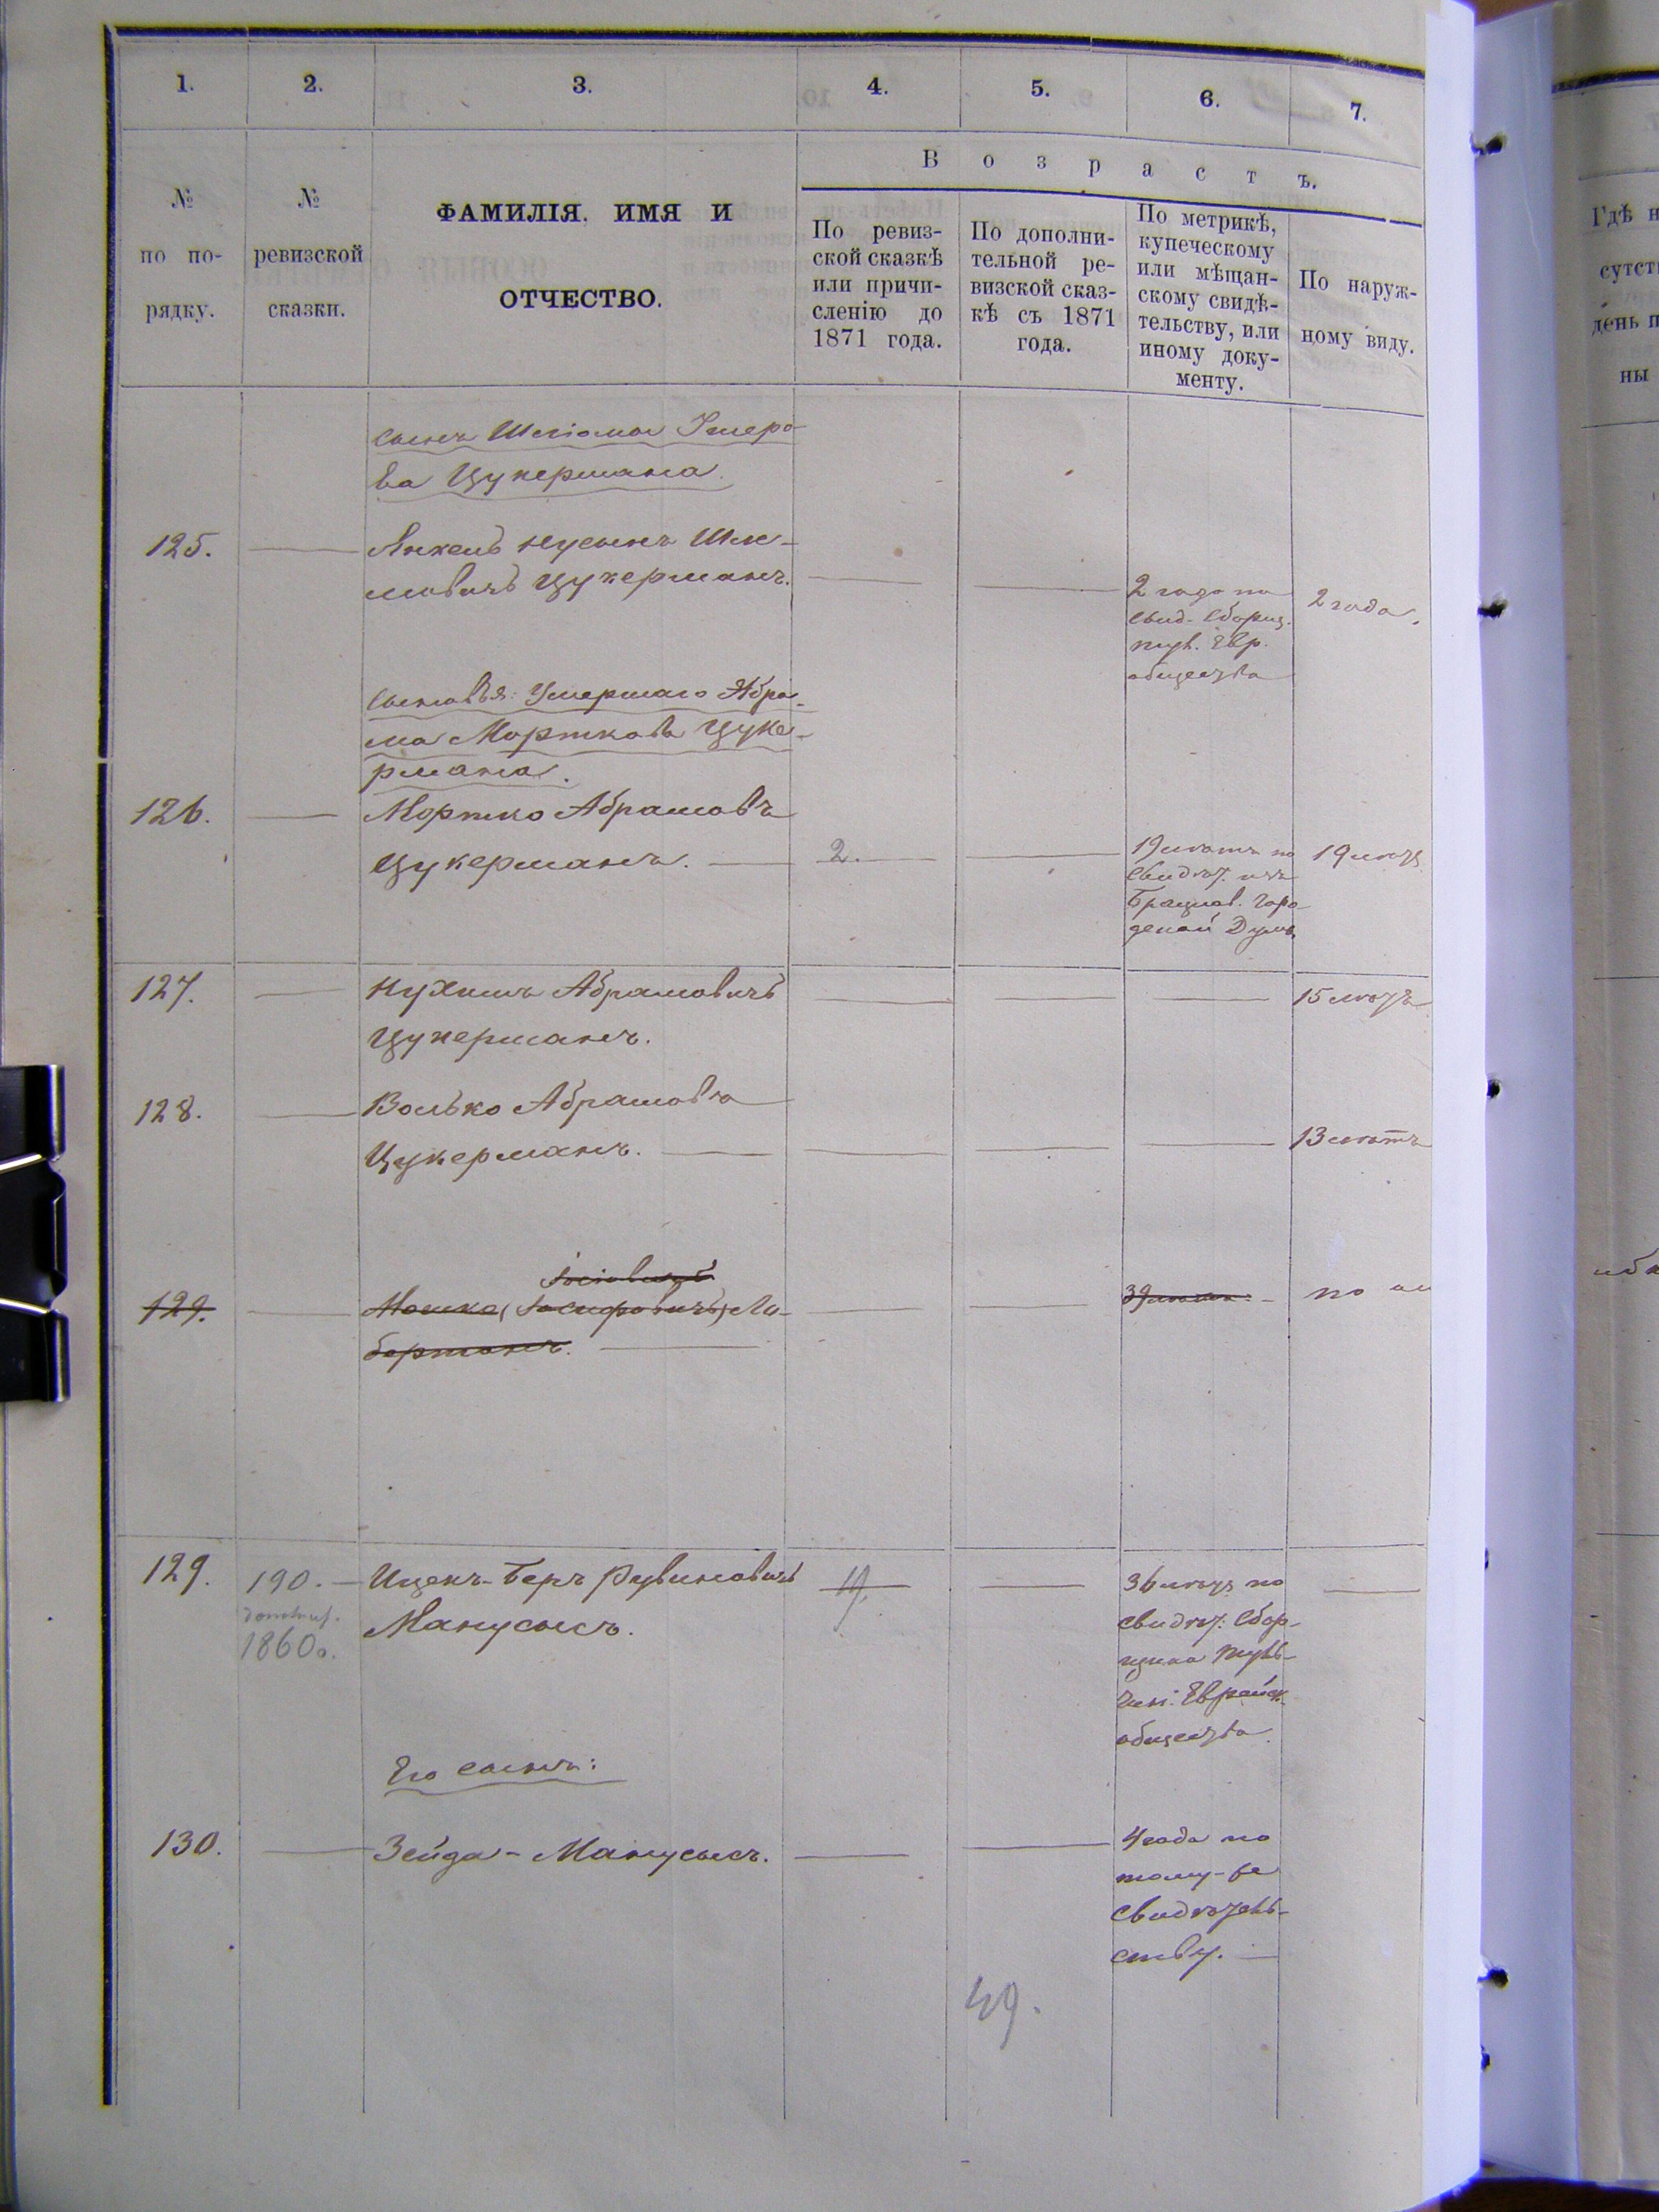 1.
2.
3.
4.
5.
6.
7.
№
по по-
рядку.
№
ревизской
сказки.
ФАМИЛІЯ. ИМЯ И
ОТЧЕСТВО.
Возрастъ.
По ревиз-
ской сказкѣ
или причи-
сленію до
1871 года.
По дополни-
тельной ре-
визской сказ-
кѣ съ 1871
года.
По метрикѣ,
купеческому
или мѣщан-
скому свидѣ-
тельству, или
иному доку-
менту.
По наруж-
ному виду.
Гдѣ н
сутст
день п
ны
сынъ Шліомы
ва Цукермана.
125.
Янкель Нусынъ Шле-
мовичъ Цукерманъ.
2 года по
свид. Сборщ.
Евр.
общества
2 года.
сыновья: Умершаго Абра-
ма Морткова Цуке-
рмана.
126.
Мортко Абрамовъ
Цукерманъ.
2.
19 лѣтъ по
свидѣт. изъ
Брацлав. Горо-
дской Думы
19 лѣтъ
127.
Нухимъ Абрамовичъ
Цукерманъ.
15 лѣтъ
128.
Волько Абрамовъ
Цукерманъ.
13 лѣтъ
129.
Мошко (Іосифовичъ) Ли-
берманъ.
39 лѣтъ
по
129.
190.
1860 г.
Ицекъ-Беръ Рувиновичъ
Манусысъ.
19.
36 лѣтъ по
свидѣт. Сбор-
щика Туль-
чин. Еврейск.
общества.
Его сынъ:
130.
Зейда - Манусысъ.
4 года по
тому-же
свидѣтель-
ству.
49.